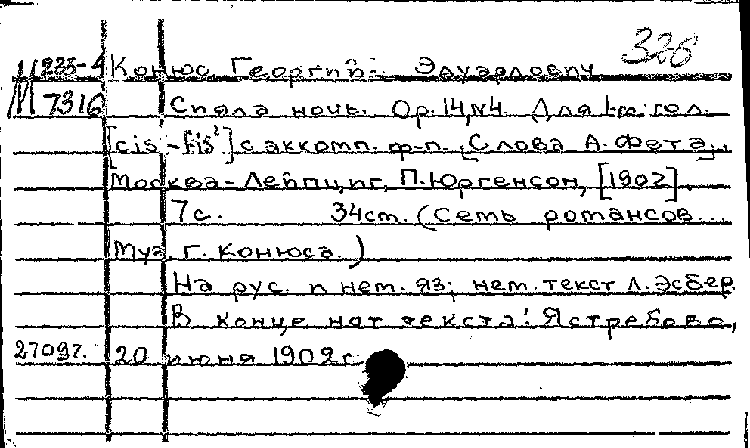 326
М 223-4 Конюс Георгий Эдуардович
7316 Спяла ночь. Ор.14,№4 Для 1-го гол.
[cis'-fis²] с аккомп. ф-п. [Слова А. Фета].
Москва-Лейпциг, П.Юргенсон, [1902].
7с. 34см. (Семь романсов...
Муз. Г. Конюса.)
На рус. и нем. яз; нем. текст Л. Эсбер.
В конце нот текста: Ястребово,
27097. 20 июня 1902 г.